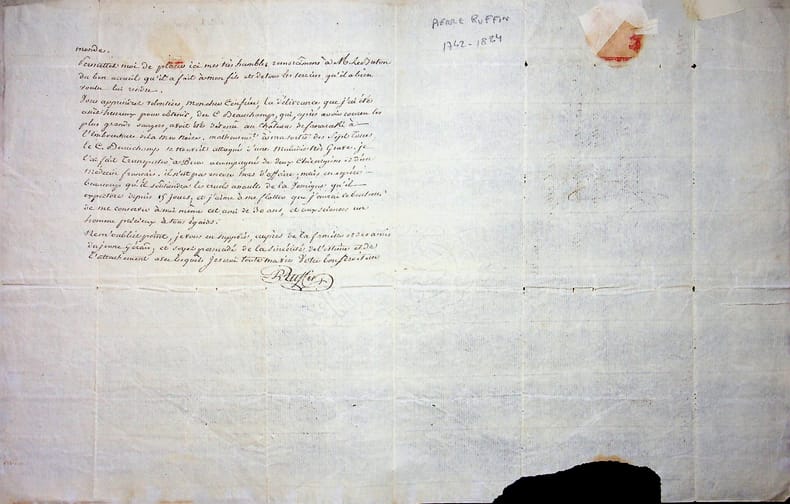 monde.
Permettez moi de placer ici mes très humbles remercimens à M. Le
du bon accueil qu'il a fait à mon fils et de tous les services qu'il a bien
voulu lui rendre.
Vous apprendrez volontiers, mon cher Confrère, la délivrance que j'ai été
assez heureux pour obtenir, du C. Beauchamp, qui, après avoir couru les
plus grands dangers, avoit été détenu au château de
à
l'embouchure de la mer Noire, malheureusemt. à ma sortie des Sept Tours
le C. Beauchamps se trouvoit attaqué d'une Maladie très Grave, je
l'ai fait Transporter à Pera accompagné de deux Chirurgiens et d'un
medecin français. il n'est pas encore hors d'affaire; mais on espère
beaucoup qu'il soutiendra les cruels assauts de la
qu'il
expectore depuis 15 jours, et j'aime à me flatter que j'aurai le bonheur
de me conserver à moi même cet ami de 20 ans, et aux sciences un
homme précieux à tous égards.
Ne m'oubliez point, je vous en supplie, auprès de la famille et des amis
du jeune
et soyez persuadé de la sincérité de l'estime et de
l'attachement avec lesquels je serai toute ma vie Votre Confrère et ami
Ruffin
PIERRE RUFFIN
1742 - 1824